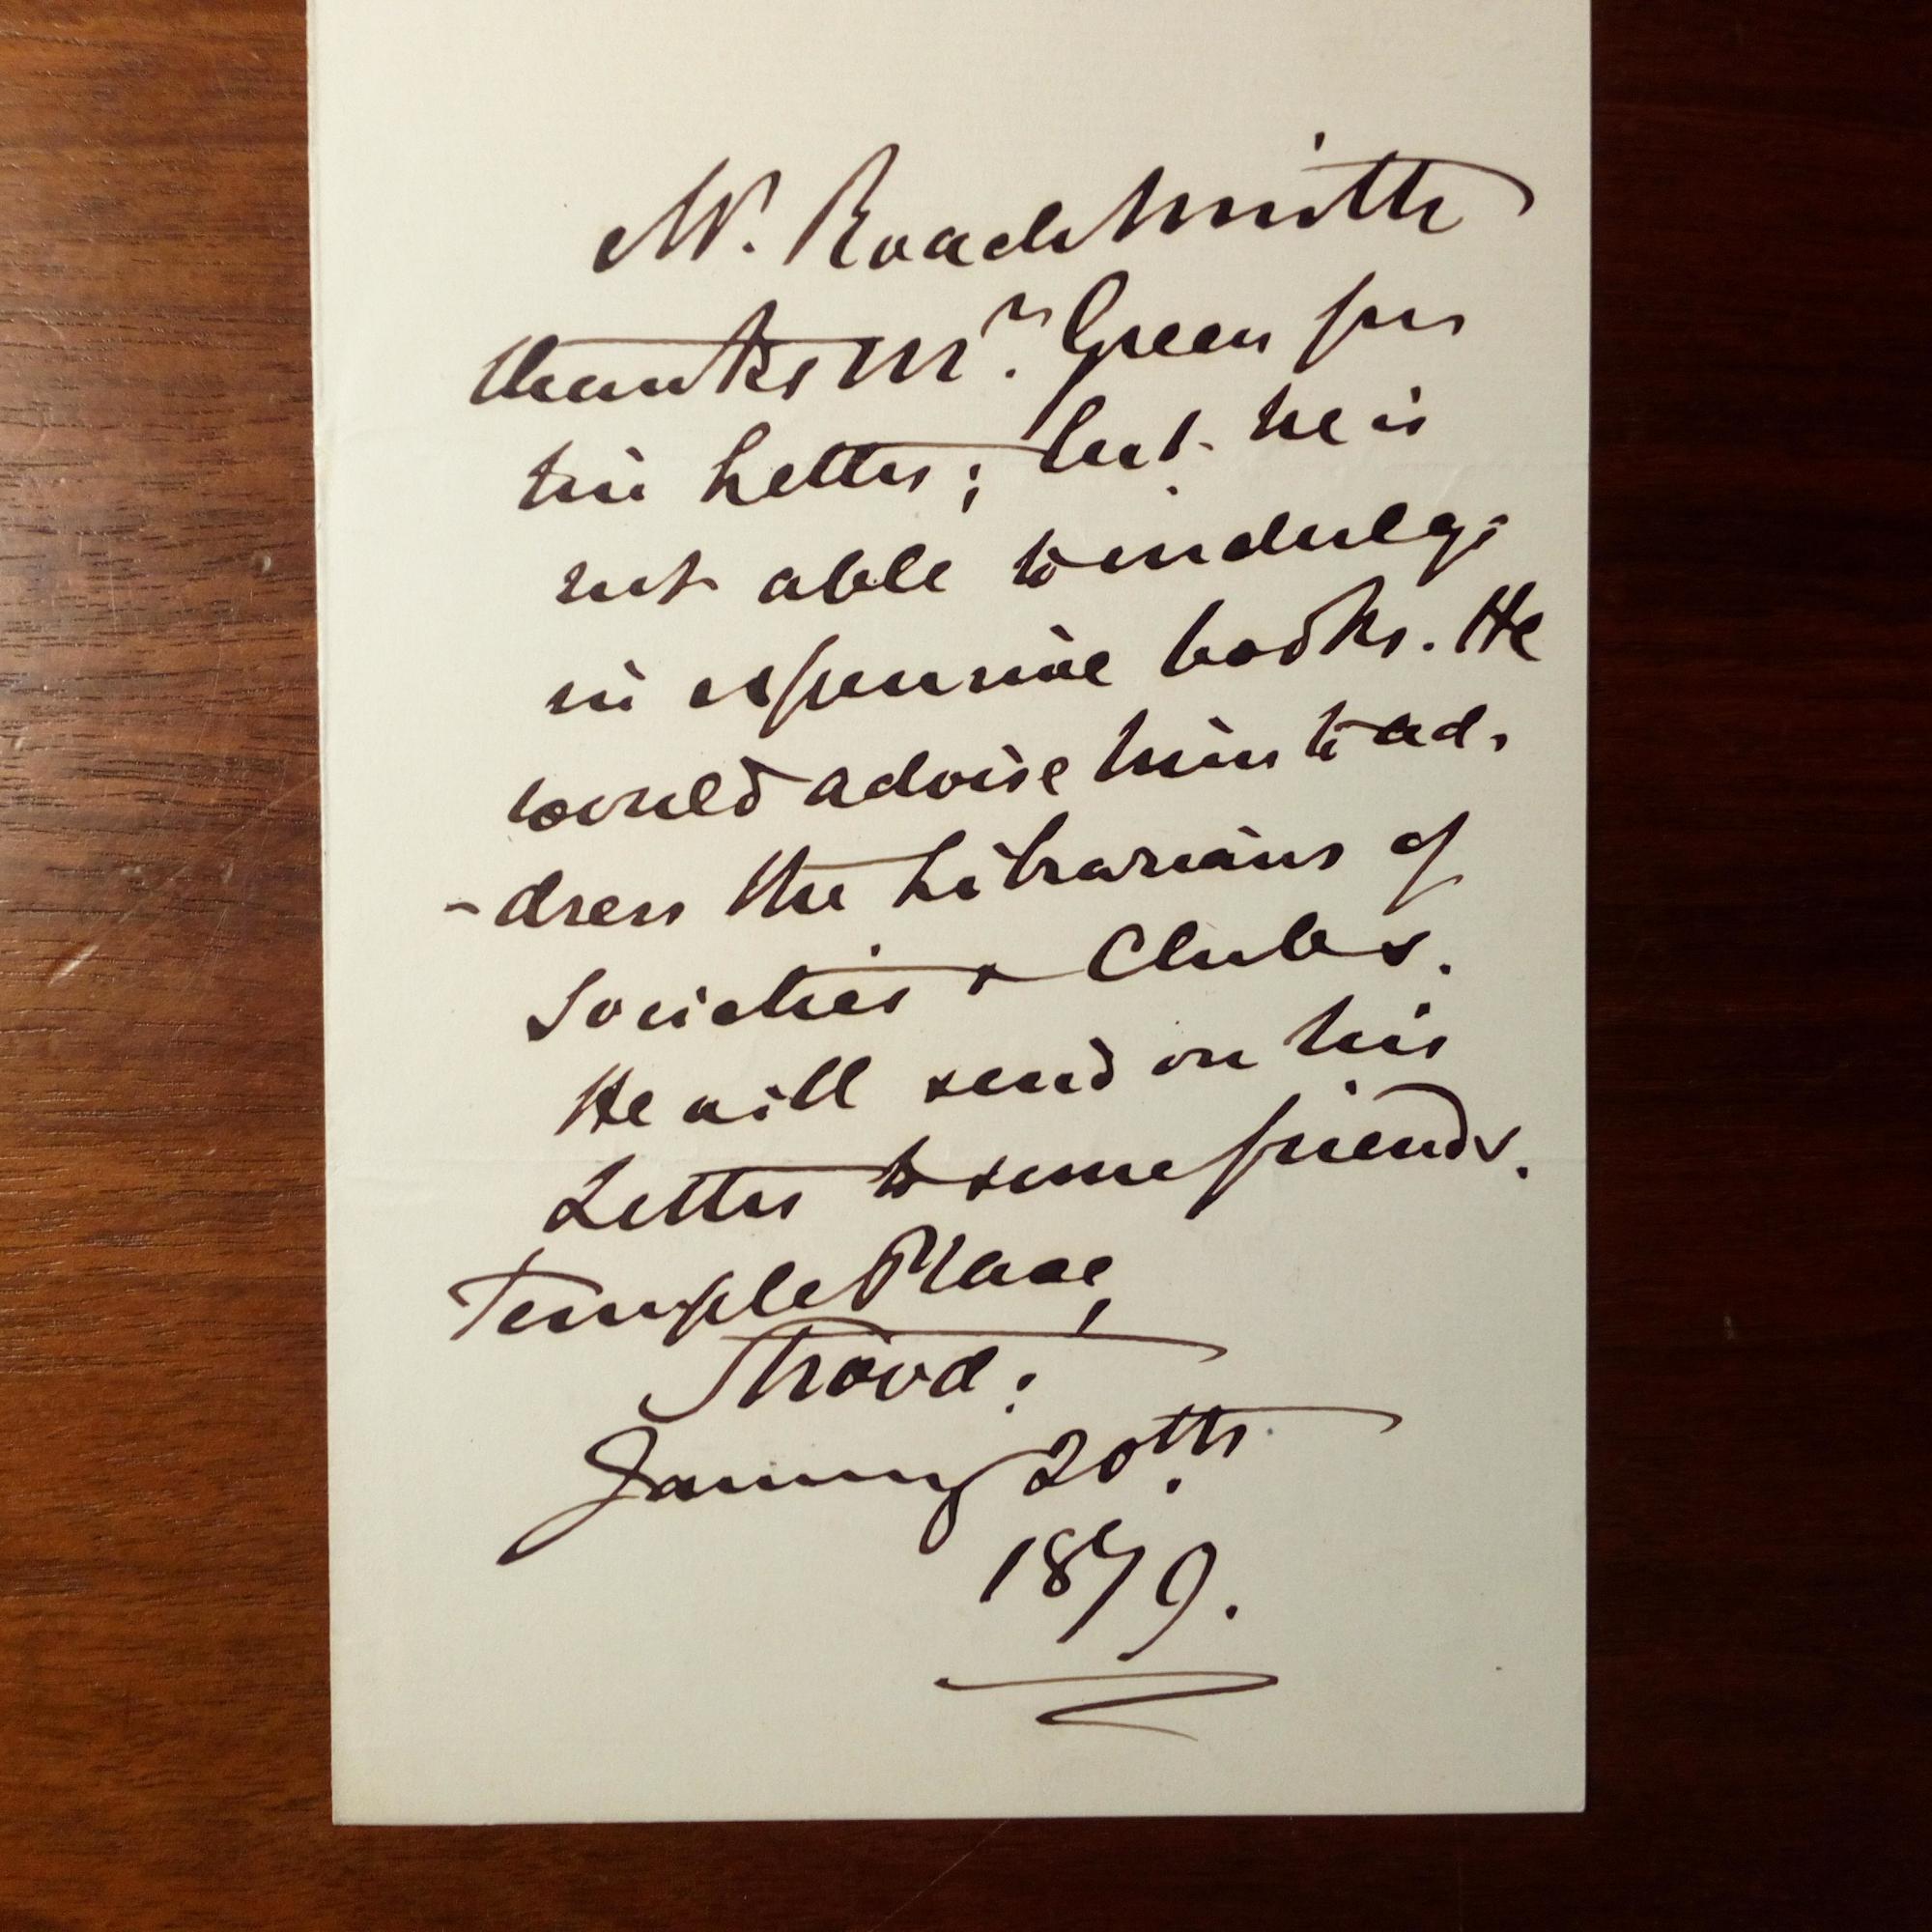 Mr. Roach Smith
thanks Mr. Green for
his Letter; but he is
not able to indulge
in expensive books. He
would advise him to ad-
-dress the Librarians of
Societies & Clubs.
He will send on his
Letter to some friends.
Temple Place,
Strood:
January 20th.
1879.